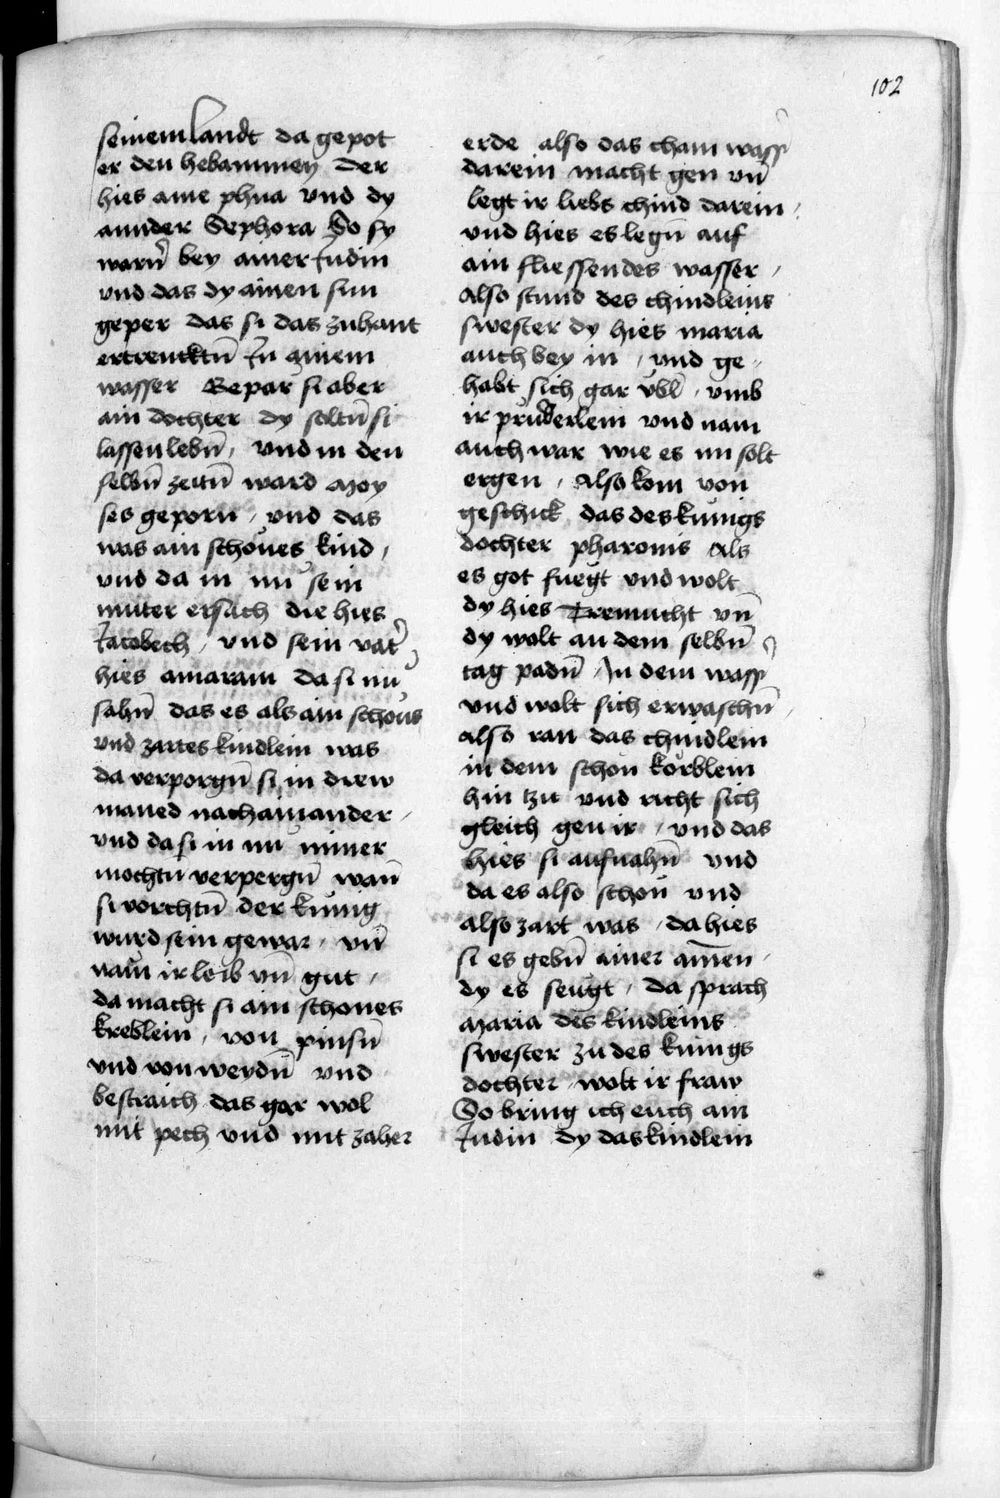 102
seinem landt da gepot
er den hebammen Der
hies aine phua vnd dy
annder Sephora So sy
warn̄ bey ainer Judin
vnd das dy ainen sun
geper das si das zuhant
ertrencktn̄ Jn ainem
wasser Gepar si aber
ain dochter dy soltn̄ si
lassen lebn̄ / vnd in den
selbn̄ zeitn̄ ward moy
ses geporn / vnd das
was ain schones kind /
vnd da in nu sein
muter ersach die hies
Jacobech / vnd sein vat̄
hies amaram da si nu
sahn̄ das es als ain schons
vnd zartes kindlein was
da verporgn̄ si in drew
maned nachainander /
vnd da si in nu nimer
mochtn verpergn̄ wan̄
si vorchtn̄ der kunig
wurd sein gewar / vn̄
nam ir leib vn̄ gut /
da macht si ain schones
kreblein / von pinsn̄
vnd von weydn̄ vnd
bestraich das gar wol
mit pech vnd mit zaher
erde also das cham wass̄
darein macht gen vn̄
legt ir liebs chind darein /
vnd hies es legn̄ auf
ain fliessendes wasser /
also stund des chindleins
swester dy hies maria
auch bey in / vnd ge
habt sich gar vbl / vmb
ir pruderlein vnd nam
auch war wie es nu solt
ergen / Also kom von
geschick das des kunigs
dochter pharonis als
es got fuegt vnd wolt
dy hies Tremucht vn̄
dy wolt an dem selbn̄
tag padn̄ / Jn dem wass̄
vnd wolt sich erwaschn̄ /
also ran das chindlein
in dem schon korblein
hin tzu vnd richt sich
gleich gen ir / vnd das
hies si aufnahn̄ vnd
da es also schon vnd
also zart was / da hies
si es gebn̄ ainer am̄en /
dy es seugt / da sprach
Maria des kindleins
swester zu des kunigs
dochter / wolt ir fraw
So bring ich euch ain
Judin dy das kindlein